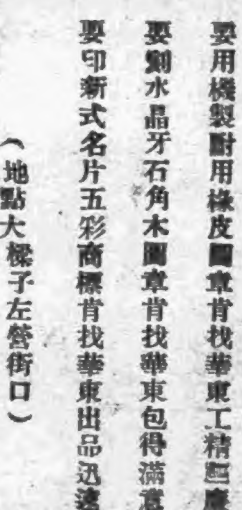 要用機製耐用橡皮圖章肯找華東工精價廉
要刻水晶牙石角木圖章肯找華東包得滿意
要印新式名片五彩商標肯找華東出品迅速
(地點大樑子左營街口)